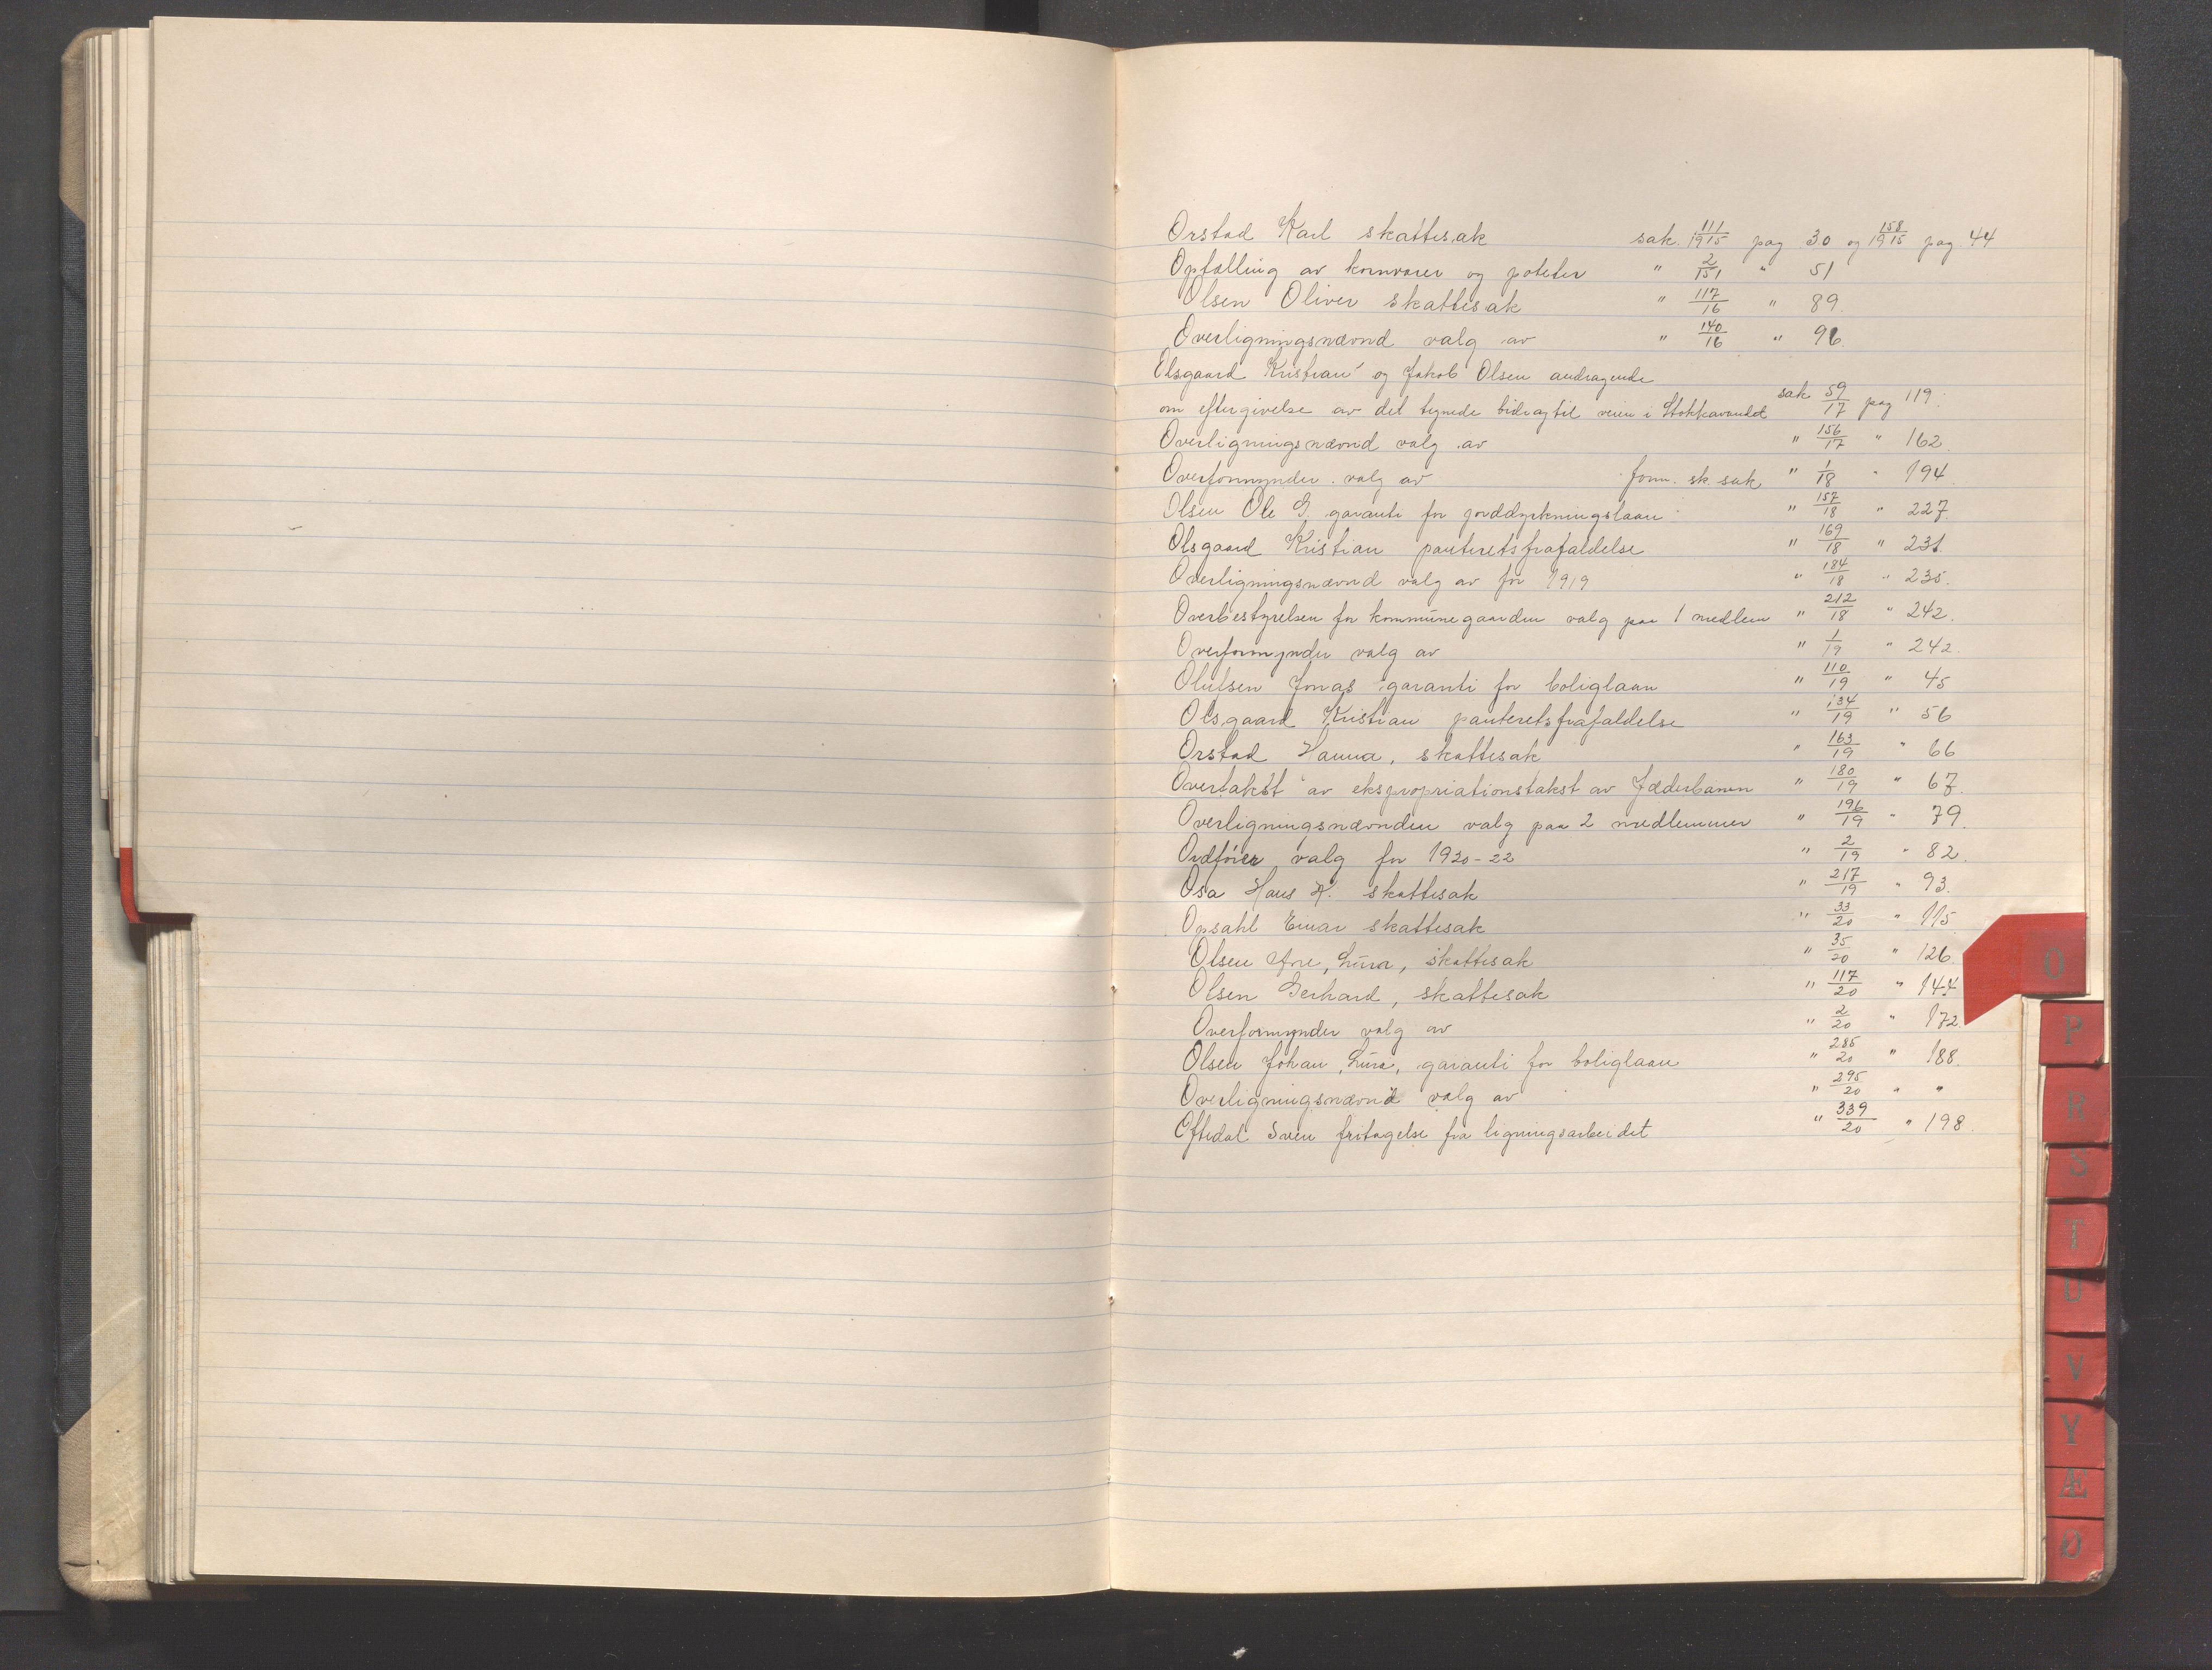 Orstad Karl skattesak sak. 111/1915 pag 30 og 158/1915 pag. 44
Optælling av kornvarer og poteter " 2/151 " 51
Olsen Oliver skattesak " 117/16 " 89.
Overligningsnævnd valg av " 140/16 " 96.
Olsgaard Kristian og Jakob Olsen andragende
om eftergivelse av det tegnede bidrag til veien i Stokkavandet sak 59/17 pag 119.
Overligningsnævnd valg av " 156/17 " 162.
Overformynder valg av form. sk. sak " 1/18 " 194.
Olsen Ole G. garanti for jorddyrkningslaan " 157/18 " 227.
Olsgaard Kristian panteretsfrafaldelse " 169/18 " 231.
Overligningsnævnd valg av for 1919 " 184/18 " 235.
Overbestyrelsen for kommunegaarden valg paa 1 medlem " 212/18 " 242.
Overformynder valg av " 1/19 " 242.
Olufsen Jonas garanti for boliglaan " 110/19 " 45
Olsgaard Kristian panteretsfrafaldelse " 134/19 " 56
Orstad Hanna, skattesak " 163/19 " 66
Overtakst av ekspropriationstakst av Jæderbanen " 180/19 " 67.
Overligningsnævnden valg paa 2 medlemmer " 196/19 " 79.
Ordfører valg for 1920-22 " 2/19 " 82.
Osa Hans H. skattesak " 217/19 " 93.
Opsahl Einar skattesak " 33/20 " 115.
Olsen Arne, Lura, skattesak " 35/20 " 126.
Olsen Gerhard, skattesak " 117/20 " 144
Overformynder valg av " 2/20 " 172.
Olsen Johan, Lura, garanti for boliglaan " 285/20 " 188.
Overligningsnævnd valg av " 295/20 " "
Oftedal Sven fritagelse fra ligningsarbeidet " 339/20 " 198.
O
P
R
S
T
U
V
Y
Æ
Ø